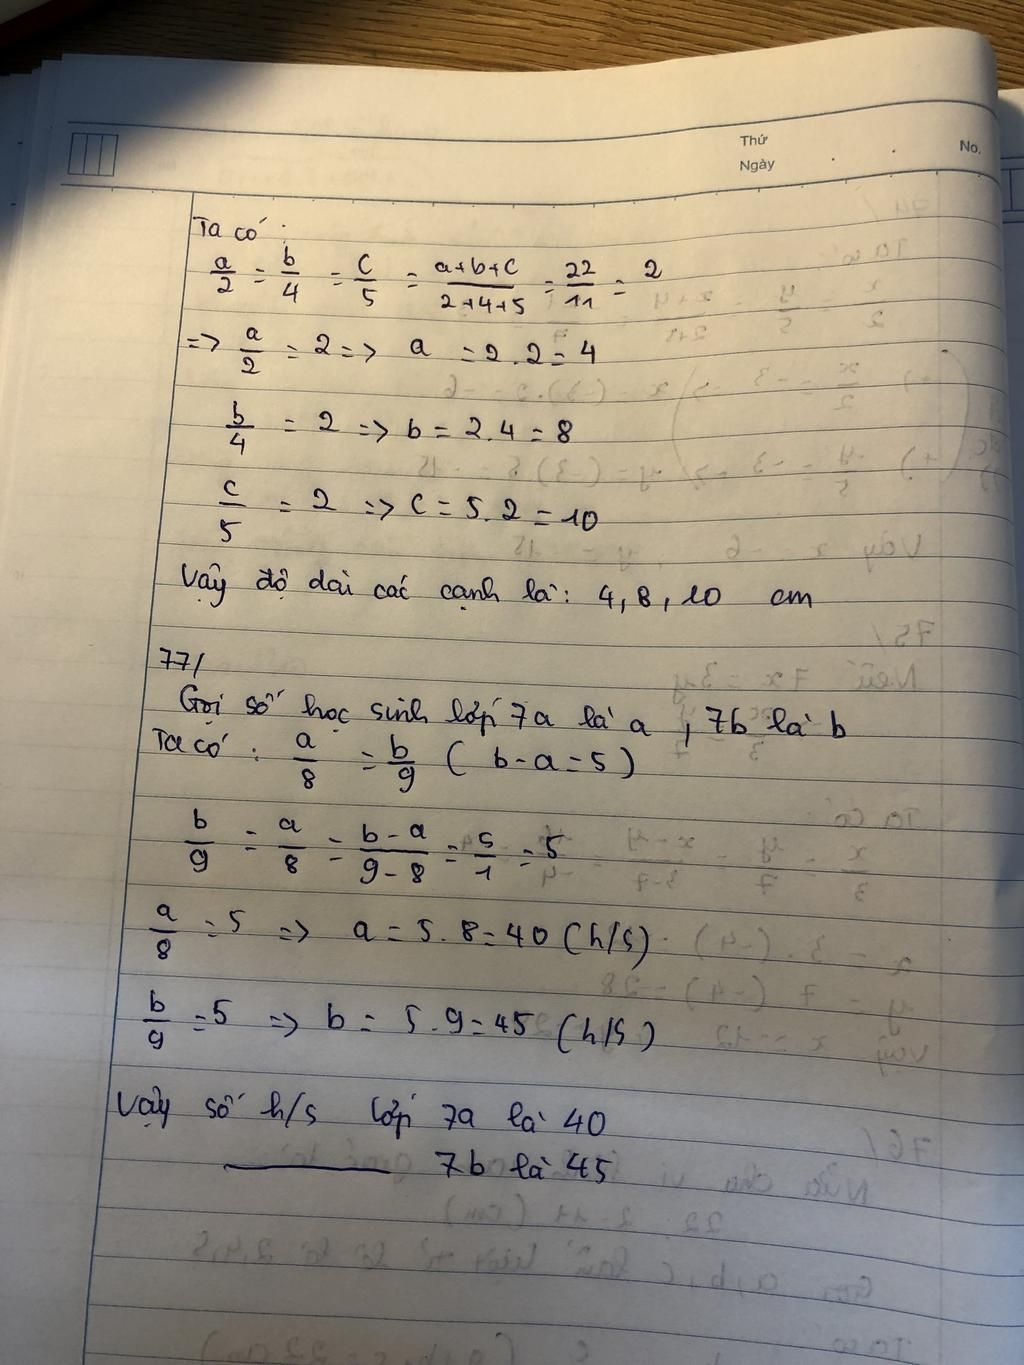 Thứ
Ngày . . No.
Ta có :
a/2 = b/4 = c/5 = a+b+c/2+4+5 = 22/11 = 2
=> a/2 = 2 => a = 2.2 = 4
b/4 = 2 => b = 2.4 = 8
c/5 = 2 => c = 5.2 = 10
Vậy độ dài các cạnh là: 4, 8, 10 cm
77/
Gọi số học sinh lớp 7a là a, 7b là b
Ta có : a/8 = b/9 ( b - a = 5 )
b/9 = a/8 = b - a/9 - 8 = 5/1 = 5
a/8 = 5 => a = 5.8 = 40 (h/s)
b/9 = 5 => b = 5.9 = 45 (h/s)
Vậy số h/s lớp 7a là 40
7b là 45